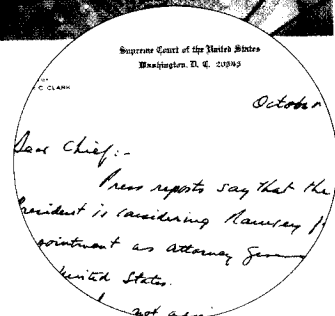 Supreme Court of the United States
Washington, D. C. 20543
C CLARK
October
Dear Chief:-
Press reports say that the
President is considering Ramsey
pointment as Attorney
United States.
not